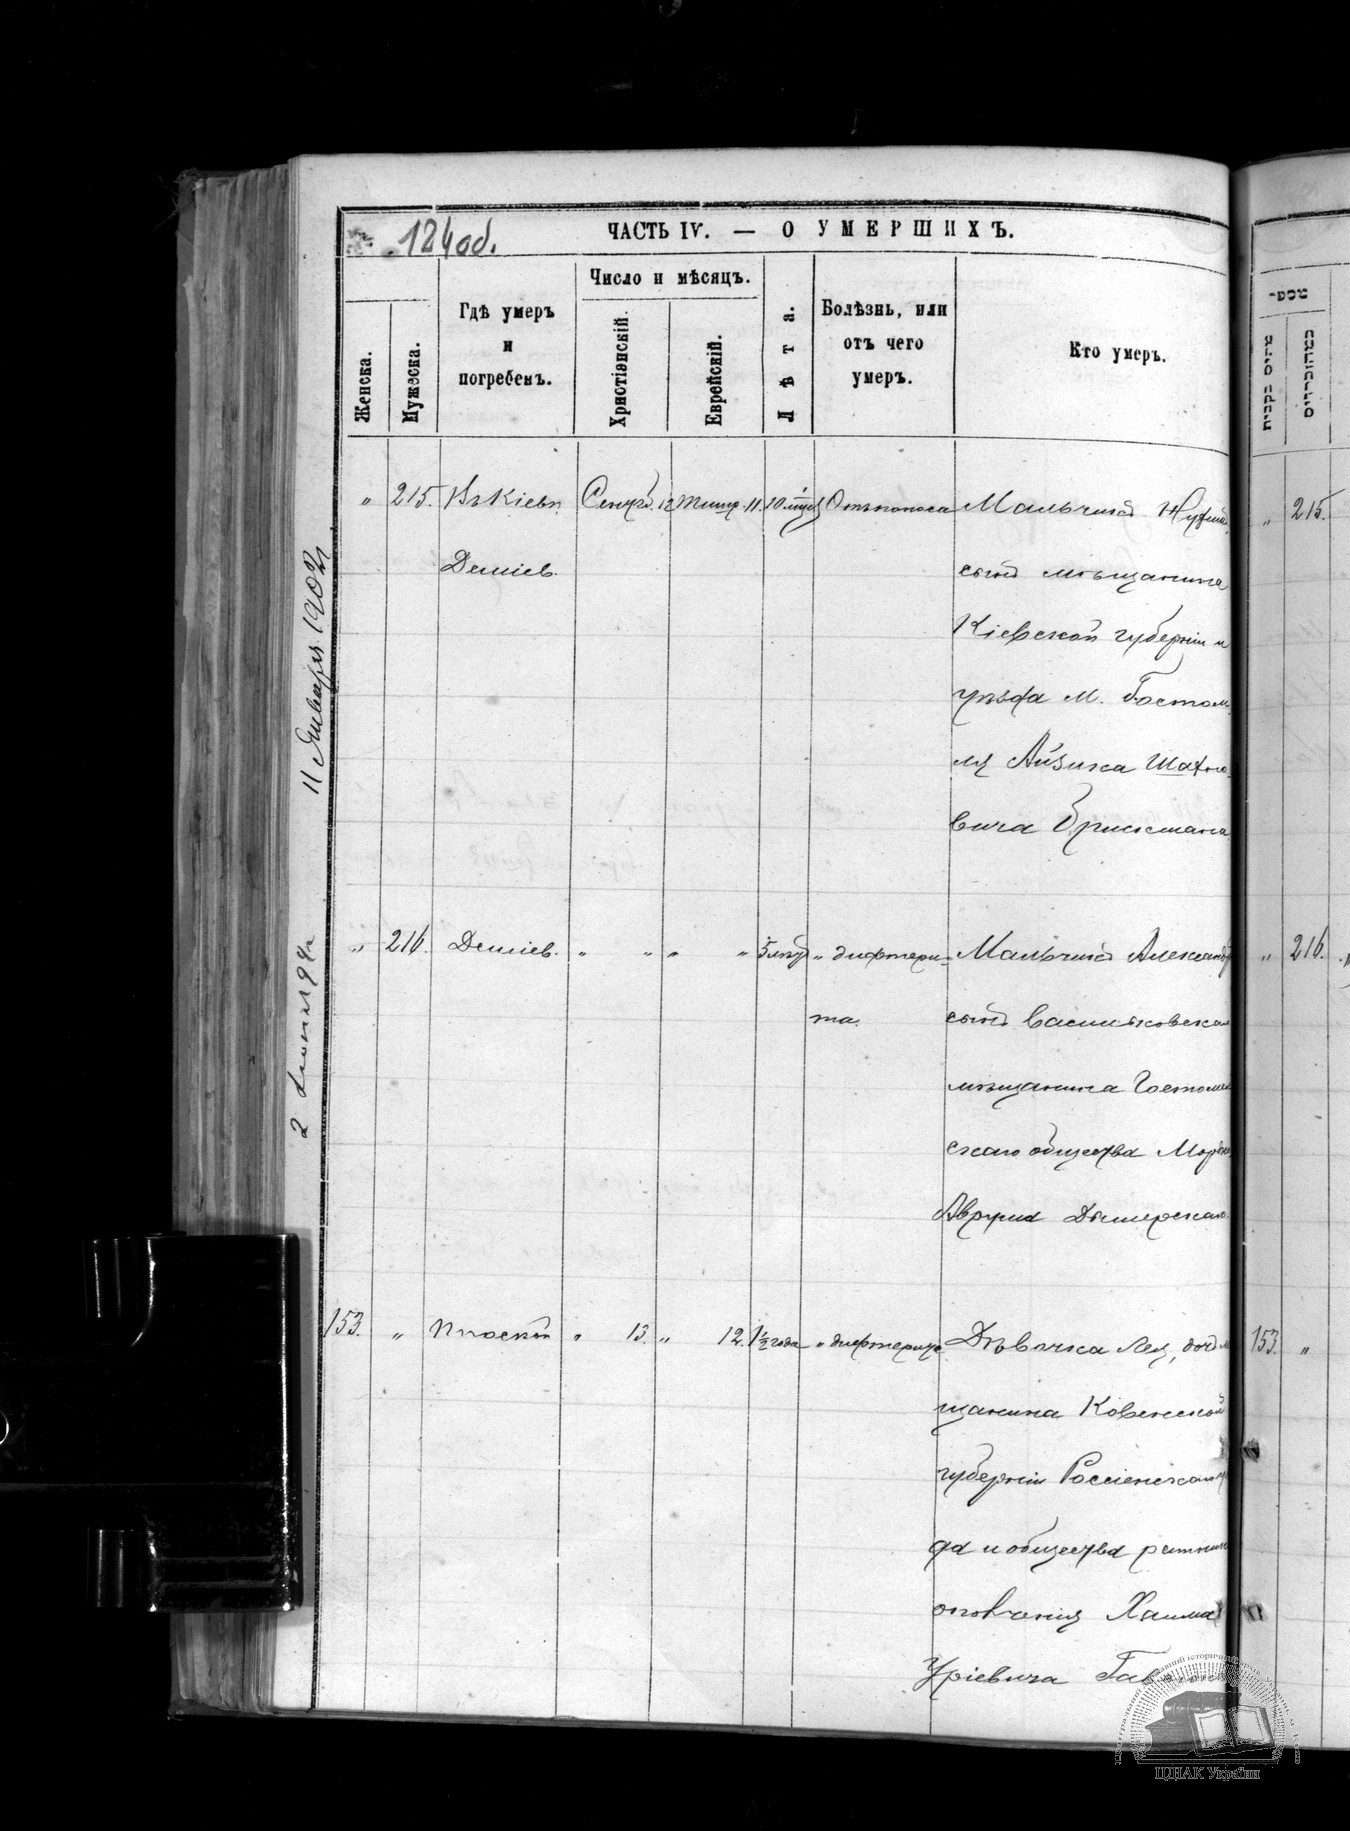 124об.
ЧАСТЬ IV. — О УМЕРШИХЪ.
Женска.
Мужеска.
Гдѣ умеръ
и
погребенъ.
Число и мѣсяцъ.
Христіянскій.
Еврейскій.
Лѣта.
Болѣзнь, или
отъ чего
умеръ.
Кто умеръ.
„ 215. Въ Кіевѣ Сентяб. 12 Тишр. 11. 10 Отъ поноса Мальчикъ
Деміев. сынъ мѣщанина
Кіевской губерніи и
уѣзда м. Гостом
ля Айзика Шахно-
вича Брискмана
„ 216. Деміев. „ „ „ „ 5 „ дифтери- Мальчикъ Александр
та. сынъ Васильковскаго
мѣщанина Гостомел
скаго общества Мордко
Димерскаго
153. „ Плоской „ 13. „ 12. 1½ года „ дифтерита Дѣвочка Лея, дочь м
щанина Ковенской
губерніи Россіенскаго у
да и общества ратника
ополченія Хаима
Уріевича
11 Января 1902
2
מספר
„ 215.
„ 216.
153. „
ЦДІАК України